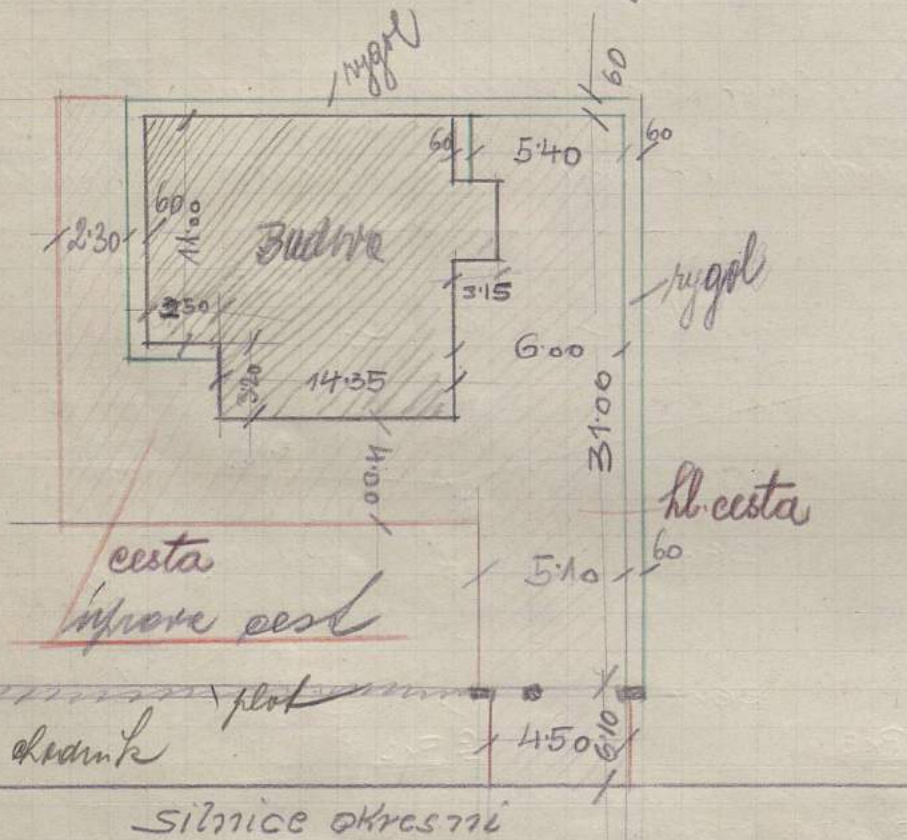 rygol
60
60
5·40
60
2·30
60
11·00
Budova
rygol
3·15
3·20
14·35
6·00
31·00
4·00
hl. cesta
cesta
5·10
60
úprava cest
plot
chodník
4·50
6·10
silnice okresní